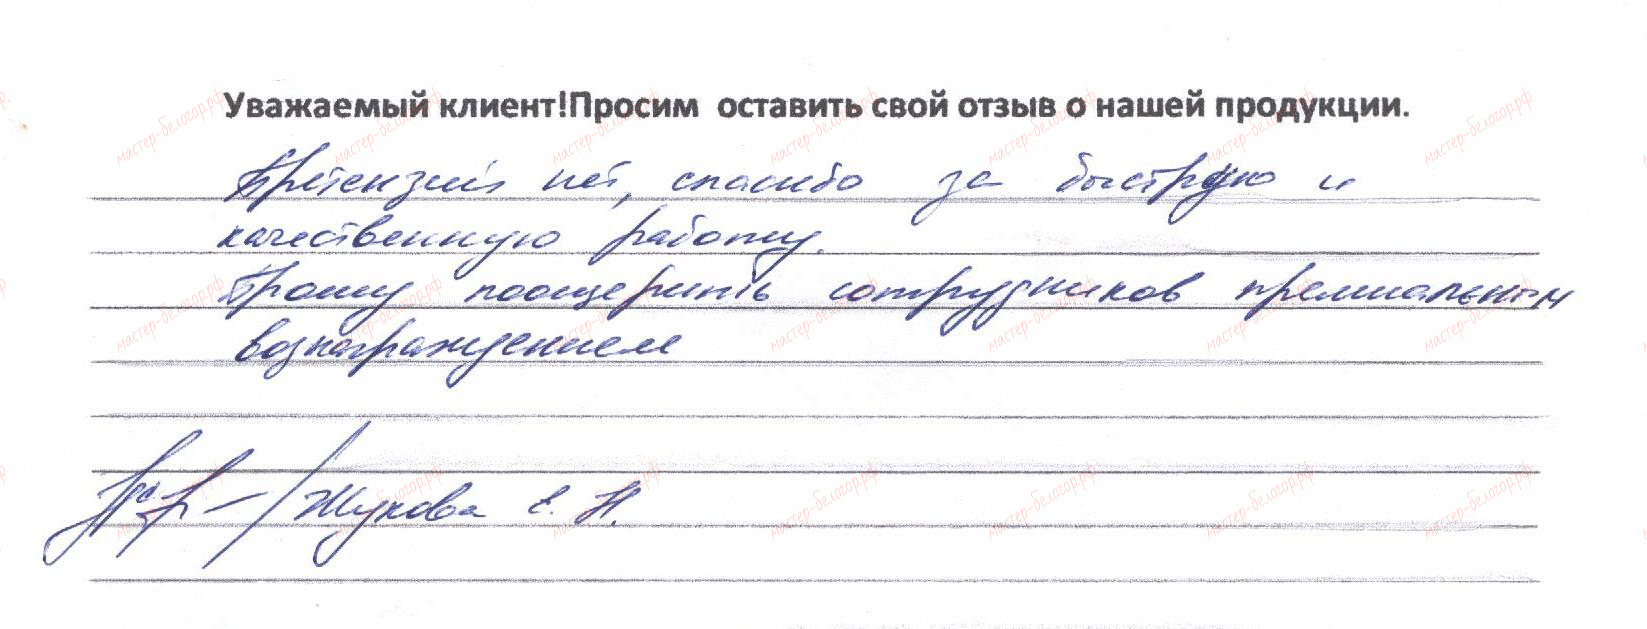 Уважаемый клиент!Просим оставить свой отзыв о нашей продукции.
Претензий нет, спасибо за быструю и
качественную работу.
Прошу поощерить сотрудников премиальным
вознаграждением
Жукова Е. Н.
мастер-белогор.рф